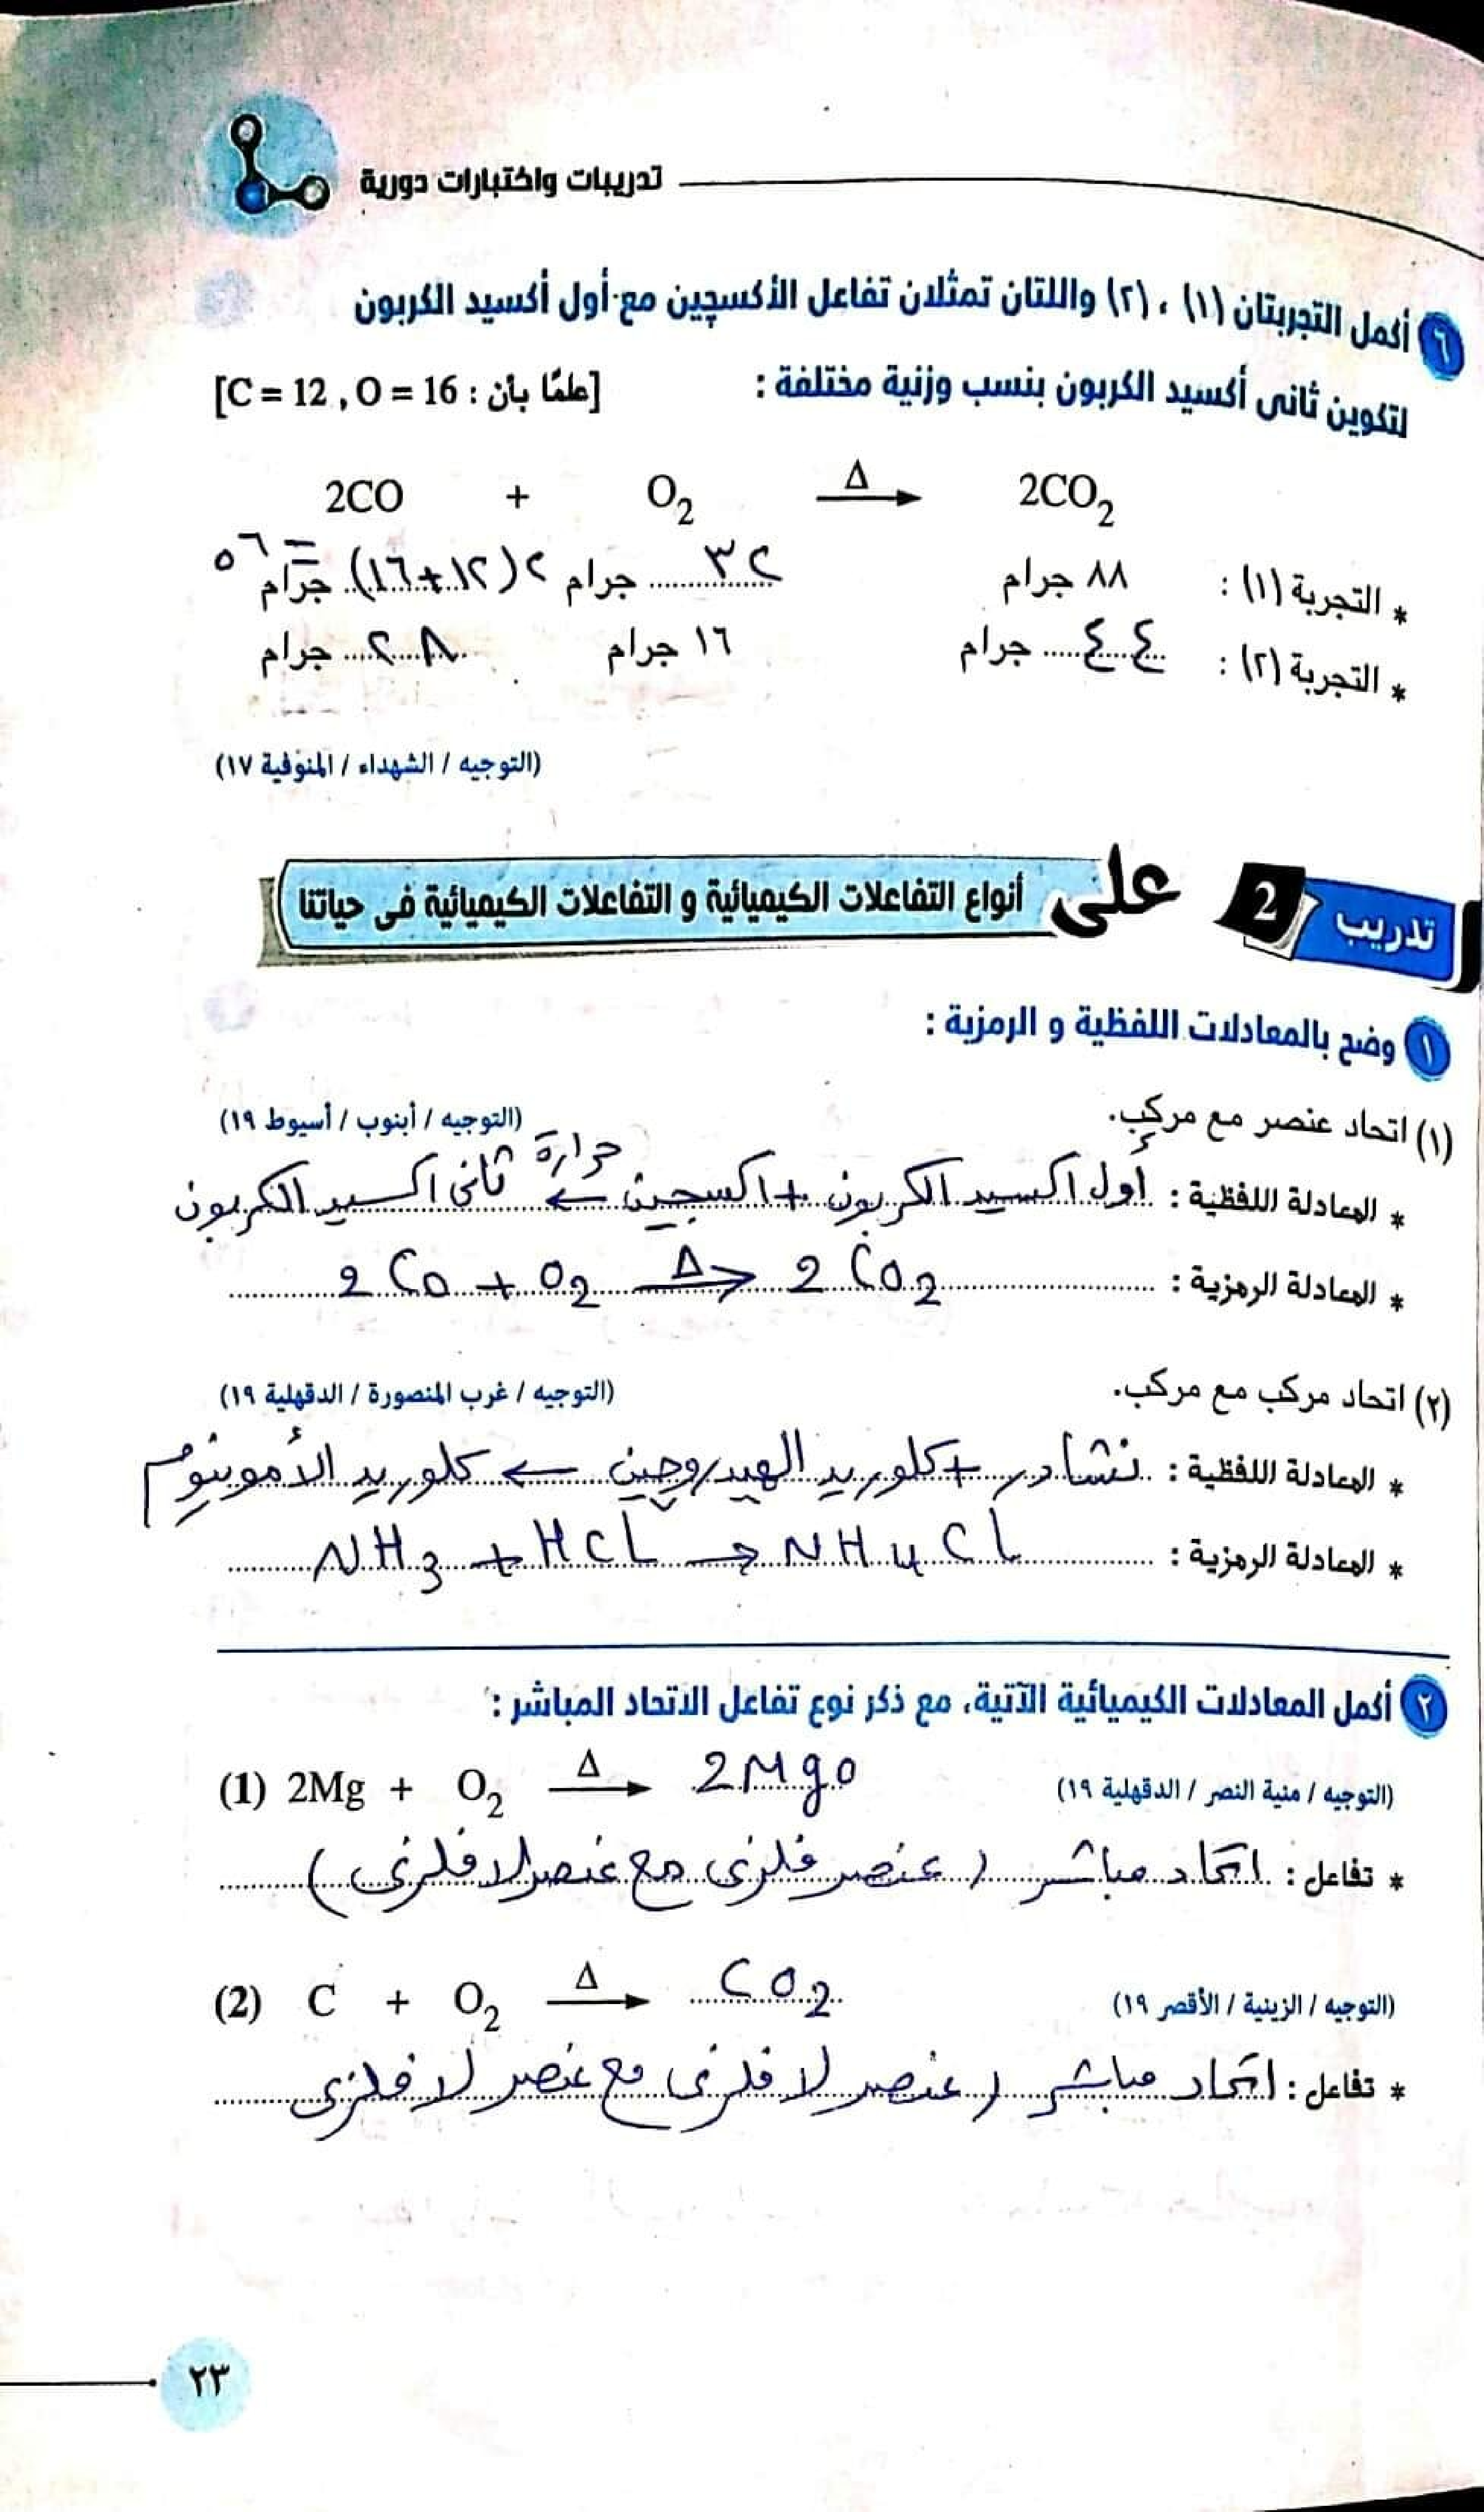 تدريبات واختبارات دورية
٦ أكمل التجربتان (١) ، (٢) واللتان تمثلان تفاعل الأكسچين مع أول أكسيد الكربون
لتكوين ثانى أكسيد الكربون بنسب وزنية مختلفة : [علمًا بأن : C = 12 , O = 16]
2CO + O₂ —Δ→ 2CO₂
* التجربة (١) : ٨٨ جرام ٣٢ جرام ٢(١٢+١٦) = ٥٦ جرام
* التجربة (٢) : ٤٤ جرام ١٦ جرام ٢٨ جرام
(التوجيه / الشهداء / المنوفية ١٧)
تدريب 2 على أنواع التفاعلات الكيميائية و التفاعلات الكيميائية فى حياتنا
١ وضح بالمعادلات اللفظية و الرمزية :
(١) اتحاد عنصر مع مركب. (التوجيه / أبنوب / أسيوط ١٩)
* المعادلة اللفظية : أول اكسيد الكربون + اكسجين ← حرارة ثانى اكسيد الكربون
* المعادلة الرمزية : 2CO + O₂ —Δ→ 2CO₂
(٢) اتحاد مركب مع مركب. (التوجيه / غرب المنصورة / الدقهلية ١٩)
* المعادلة اللفظية : نشادر + كلوريد الهيدروجين ← كلوريد الأمونيوم
* المعادلة الرمزية : NH₃ + HCl → NH₄Cl
٢ أكمل المعادلات الكيميائية الآتية، مع ذكر نوع تفاعل الاتحاد المباشر :
(1) 2Mg + O₂ —Δ→ 2MgO (التوجيه / منية النصر / الدقهلية ١٩)
* تفاعل : اتحاد مباشر (عنصر فلزى مع عنصر لا فلزى)
(2) C + O₂ —Δ→ CO₂ (التوجيه / الزينية / الأقصر ١٩)
* تفاعل : اتحاد مباشر (عنصر لا فلزى مع عنصر لا فلزى
٢٣